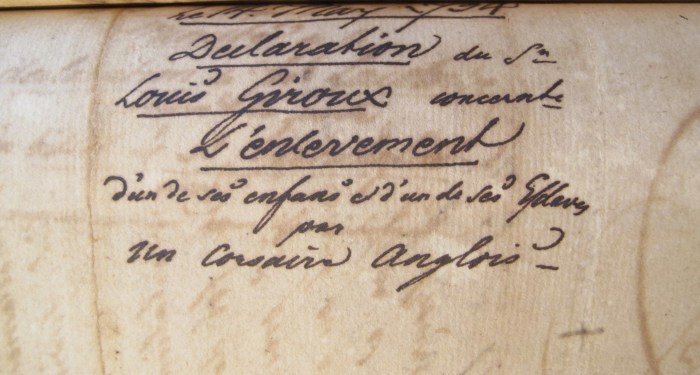 Declaration du Sr
Louis Giroux concernte
L'enlevement
d'un de ses enfans et d'un de ses Esclaves
par
un Corsaire Anglois